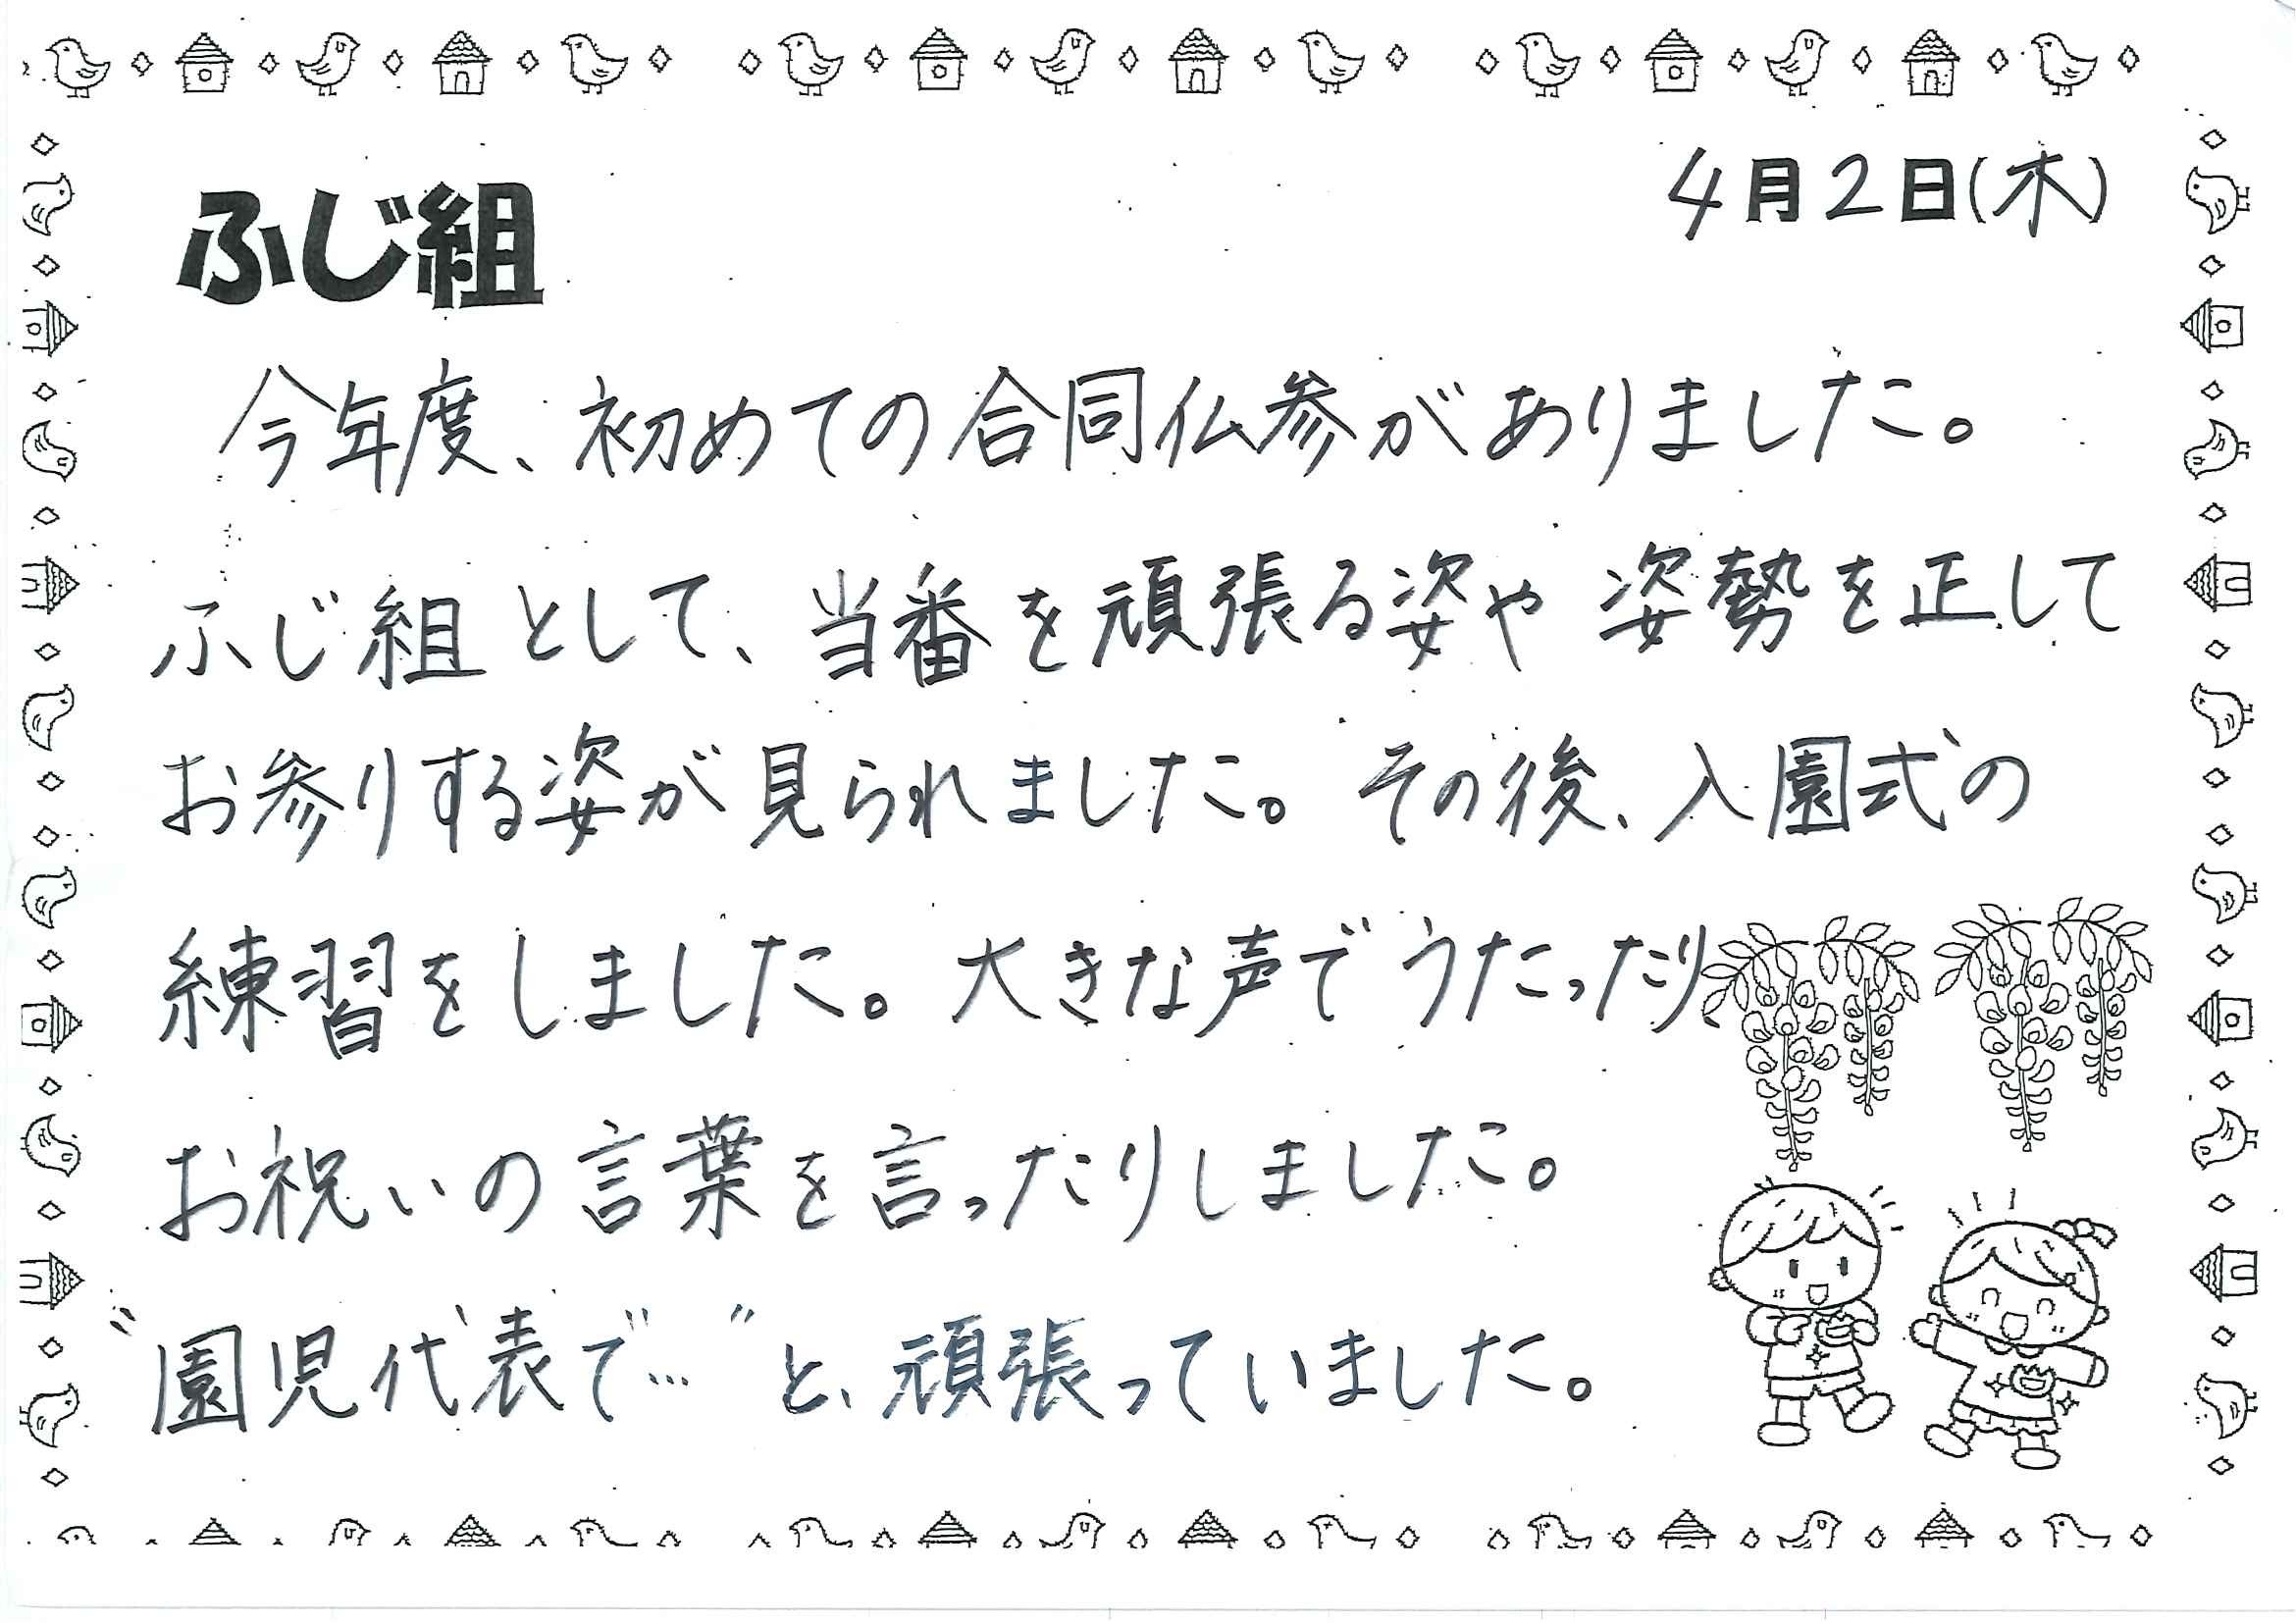 4月2日(木)
ふじ組
今年度、初めての合同仏参がありました。
ふじ組として、当番を頑張る姿や姿勢を正して
お参りする姿が見られました。その後、入園式の
練習をしました。大きな声でうたったり、
お祝いの言葉を言ったりしました。
〝園児代表で…〟と、頑張っていました。